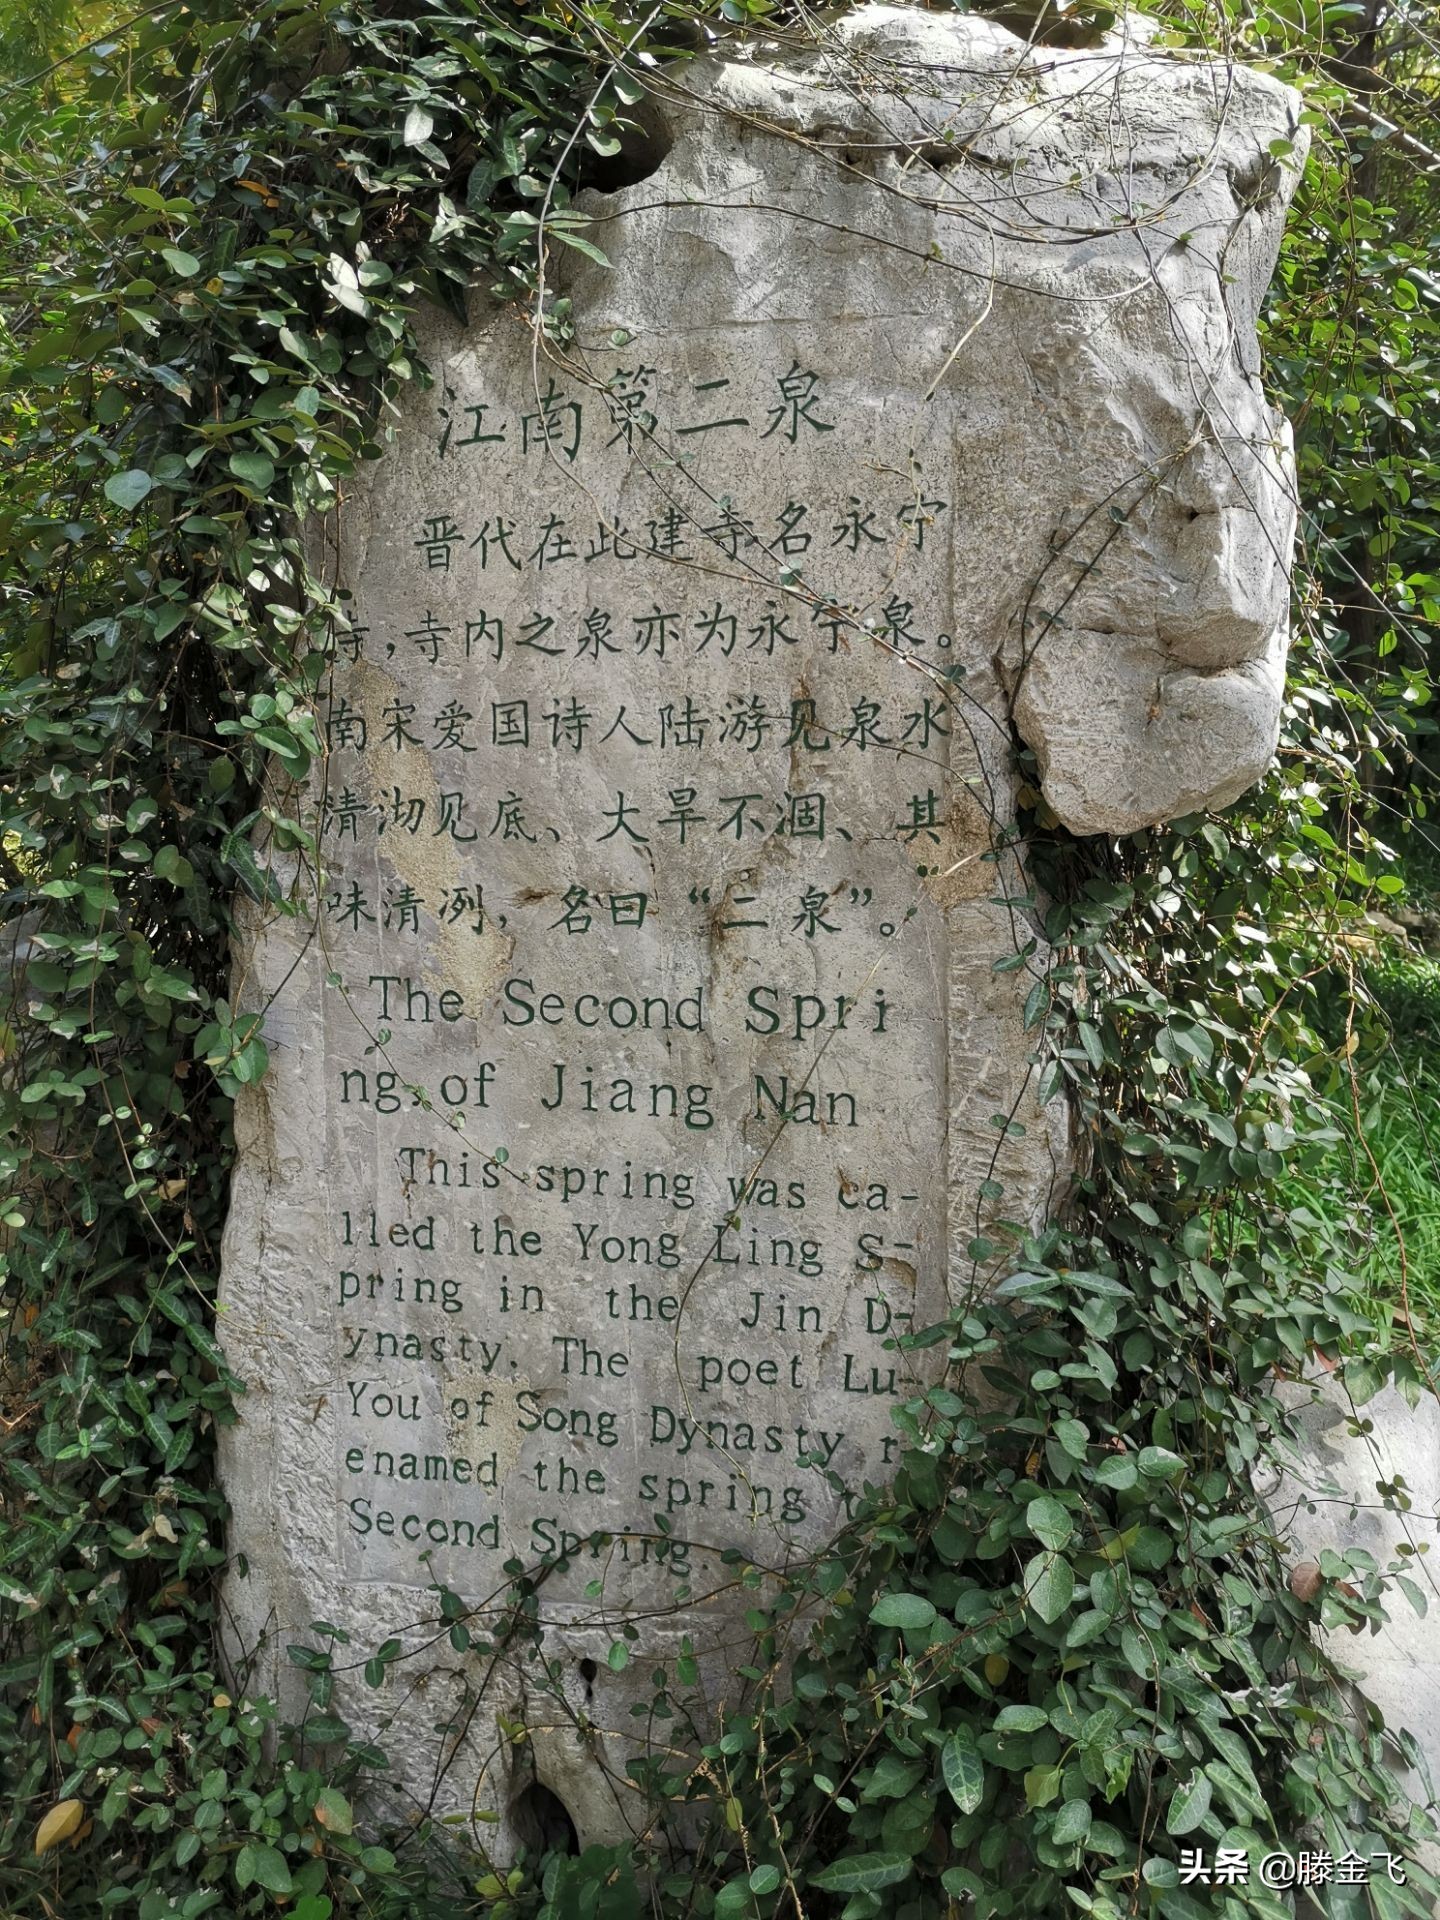 江南第二泉
晋代在此建寺名永宁
寺,寺内之泉亦为永宁泉。
南宋爱国诗人陆游见泉水
清沏见底、大旱不涸、其
味清冽,名曰“二泉”。
The Second Spri
ng of Jiang Nan
This spring was ca-
lled the Yong Ling S-
pring in the Jin D-
ynasty. The poet Lu-
You of Song Dynasty r-
enamed the spring t
Second Spring.
头条 @滕金飞